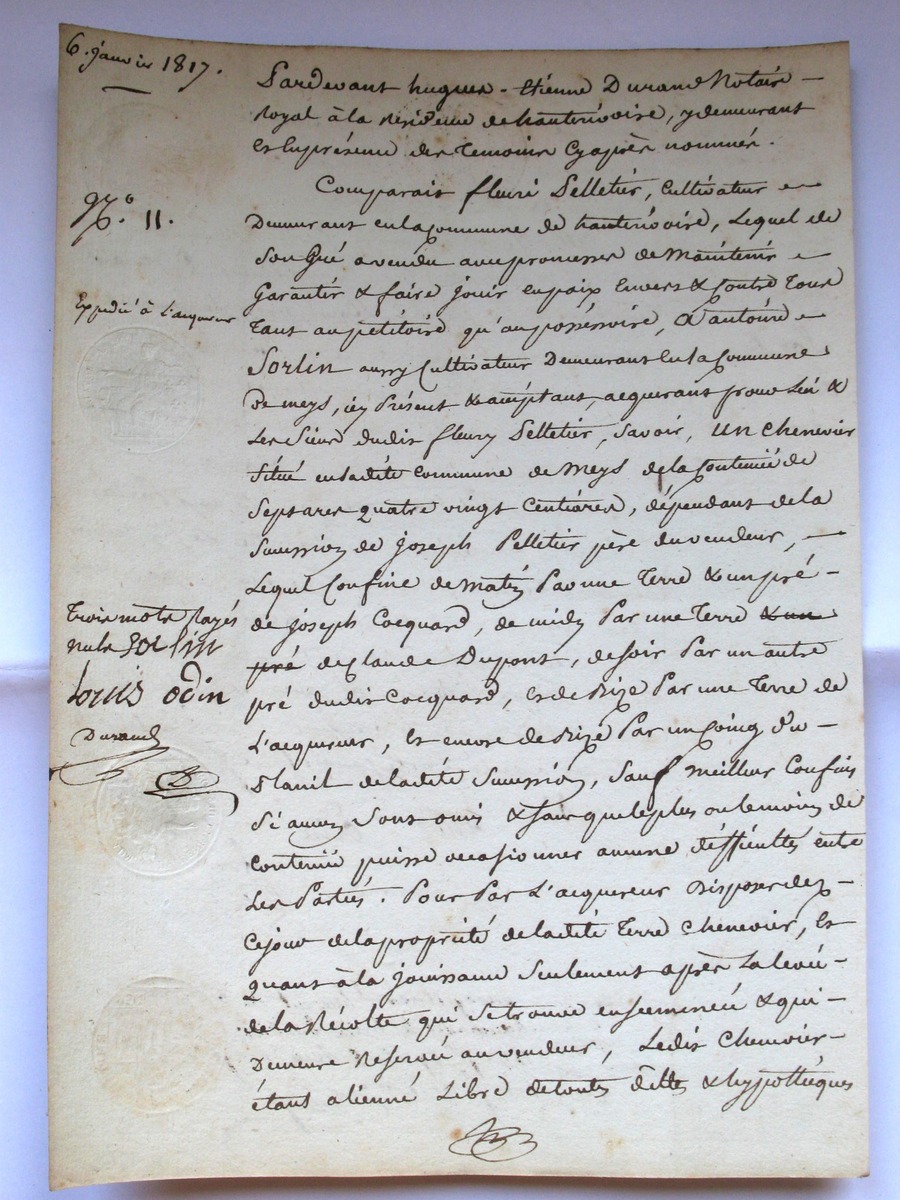 6. janvier 1817.
Pardevant hugues - Etienne Durand Notaire
Royal à la Résidence de hauterivoire, y demeurant
et En présence des Temoins Cy après nommés.
N.° 11.
Comparait fleuri Pelletier, Cultivateur
Demeurant en la Commune de hauterivoire, Lequel de
Son Gré a vendu avec promesses de Maintenir
Expedié à l'acquereur
Garantir & faire jouir en paix Envers & Contre Tous
Tant au petitoire qu'au possessoire, à antoine
Sorlin aussy Cultivateur Demeurant En la Commune
De meys, icy Présent & acceptant, acquerant pour Lui &
Les Siens dudit fleury Pelletier, Savoir, un chenevier
Situé en ladite Commune de Meys de la Contenue de
Sept ares quatre vingt Centiares, dépendant de la
Succession de joseph Pelletier père du vendeur,
Lequel Confine de matin Par une Terre & un pré
Trois mots Rayés
nuls Sorlin
Louis odin
Durand
de joseph Cocquard, de midy Par une Terre & un
pré de Claude Dupont, de soir Par un autre
pré dudit Cocquard, et de Bize Par une Terre de
L'acquereur, et encore de Bize Par un Coing d'u
Slanit de ladite Succession, Sauf meilleurs Confins
Si aucuns Sont omis & sans que le plus ou le moins de
Contenue puisse occasionner aucune difficultés entre
Les Parties. Pour Par L'acquereur Disposer dez
Ce jour de la propriété de ladite Terre Chenevier, Et
quant à la jouissance Seulement après La levée
de la Récolte qui Se trouve ensemencée & qui
Demeure Reservée au vendeur, Ledit Chenevier
étant aliénné Libre de toutes dettes & hypothèques